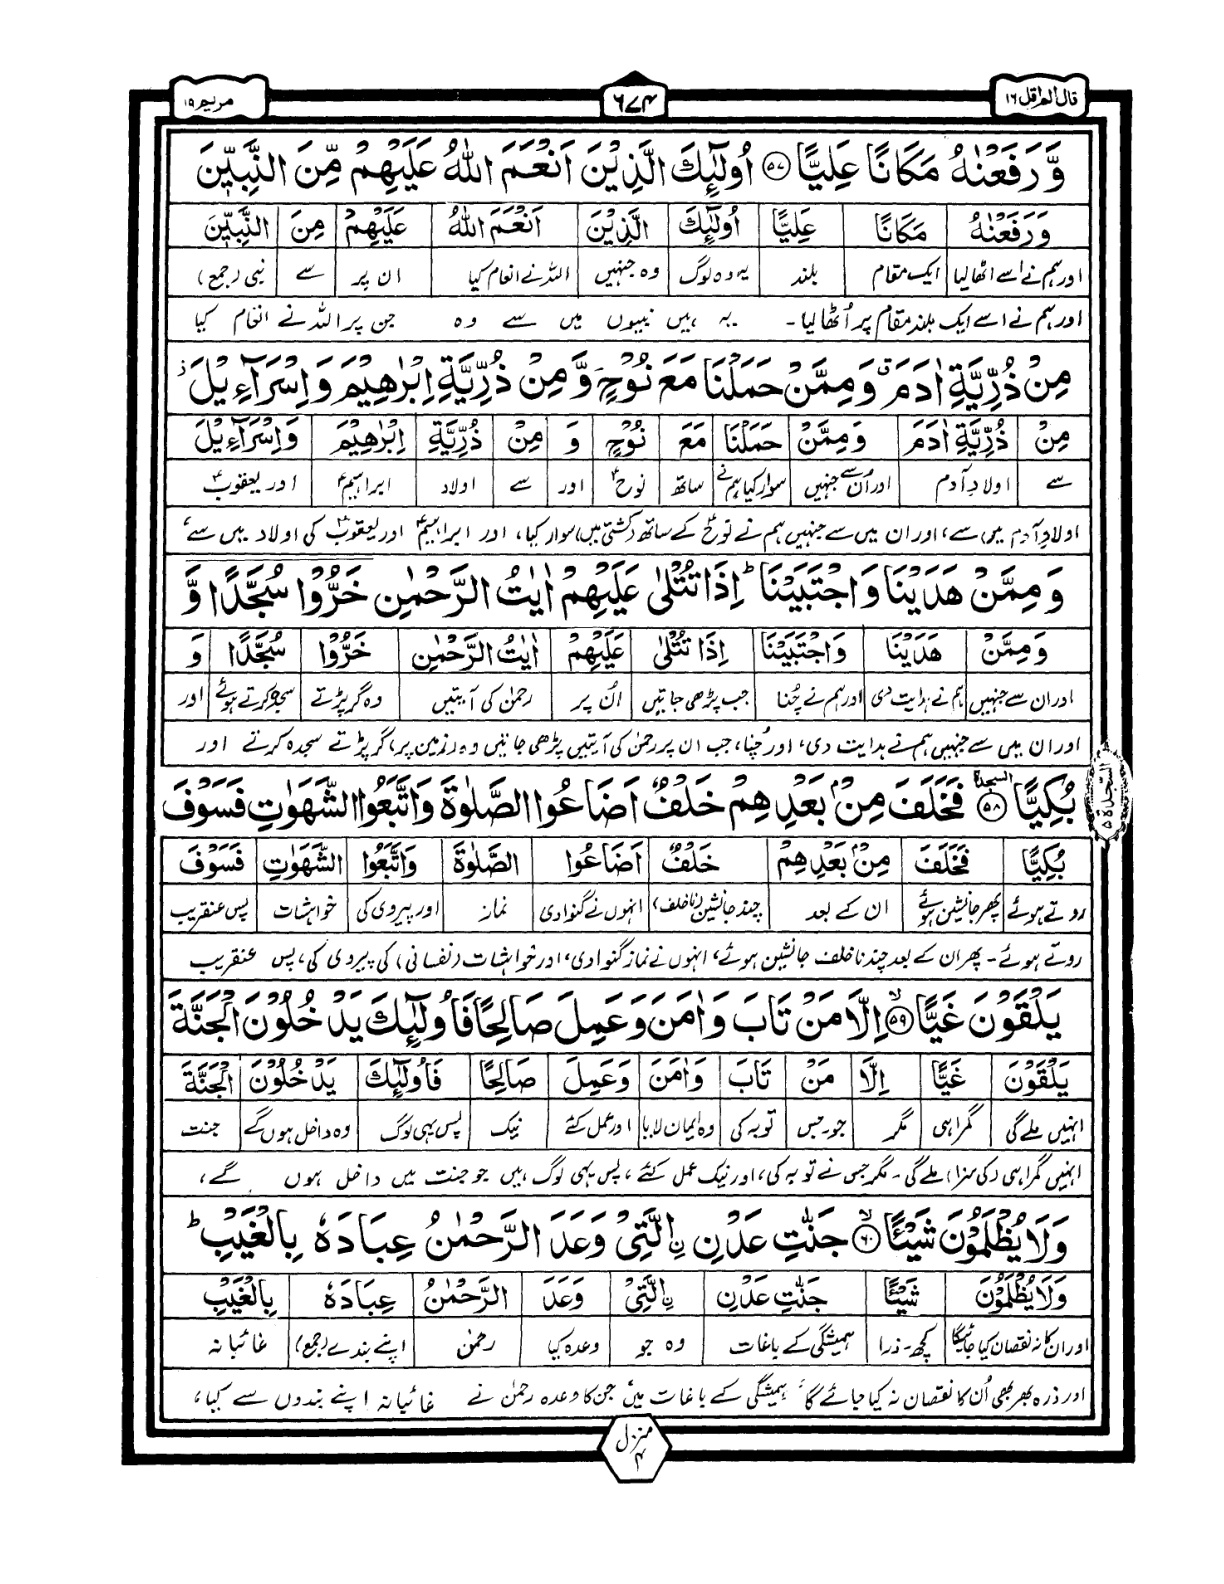 قال الم اقل ۱۶
۶۷۴
مریم ۱۹
وَّرَفَعْنٰهُ مَكَانًا عَلِيًّا ﴿۵۷﴾ اُولٰٓئِكَ الَّذِيْنَ اَنْعَمَ اللّٰهُ عَلَيْهِمْ مِّنَ النَّبِيّٖنَ
وَرَفَعْنٰهُ مَكَانًا عَلِيًّا اُولٰٓئِكَ الَّذِيْنَ اَنْعَمَ اللّٰهُ عَلَيْهِمْ مِنَ النَّبِيّٖنَ
اور ہم نے اسے اٹھا لیا ایک مقام بلند یہ وہ لوگ وہ جنہیں اللہ نے انعام کیا ان پر سے نبی (جمع)
اور ہم نے اسے ایک بلند مقام پر اُٹھا لیا۔ یہ ہیں نبیوں میں سے وہ جن پر اللہ نے انعام کیا
مِنْ ذُرِّيَّةِ اٰدَمَ ق وَمِمَّنْ حَمَلْنَا مَعَ نُوْحٍ وَّمِنْ ذُرِّيَّةِ اِبْرٰهِيْمَ وَاِسْرَآءِيْلَ ز
مِنْ ذُرِّيَّةِ اٰدَمَ وَمِمَّنْ حَمَلْنَا مَعَ نُوْحٍ وَ مِنْ ذُرِّيَّةِ اِبْرٰهِيْمَ وَاِسْرَآءِيْلَ
سے اولادِ آدم اور اُن سے جنہیں سوار کیا ہم نے ساتھ نوحؑ اور سے اولاد ابراہیمؑ اور یعقوبؑ
اولادِ آدم میں سے، اور ان میں سے جنہیں ہم نے نوحؑ کے ساتھ (کشتی میں) سوار کیا، اور ابراہیمؑ اور یعقوبؑ کی اولاد میں سے،
وَمِمَّنْ هَدَيْنَا وَاجْتَبَيْنَا ؕ اِذَا تُتْلٰى عَلَيْهِمْ اٰيٰتُ الرَّحْمٰنِ خَرُّوْا سُجَّدًا وَّ
وَمِمَّنْ هَدَيْنَا وَاجْتَبَيْنَا اِذَا تُتْلٰى عَلَيْهِمْ اٰيٰتُ الرَّحْمٰنِ خَرُّوْا سُجَّدًا وَ
اور ان سے جنہیں ہم نے ہدایت دی اور ہم نے چُنا جب پڑھی جاتیں اُن پر رحمٰن کی آیتیں وہ گر پڑتے سجدہ کرتے ہوئے اور
اور ان میں سے جنہیں ہم نے ہدایت دی، اور چُنا، جب ان پر رحمٰن کی آیتیں پڑھی جاتیں وہ (زمین پر) گر پڑتے سجدہ کرتے اور
بُكِيًّا ﴿۵۸﴾ السجدة فَخَلَفَ مِنْۢ بَعْدِهِمْ خَلْفٌ اَضَاعُوا الصَّلٰوةَ وَاتَّبَعُوا الشَّهَوٰتِ فَسَوْفَ
السّجدة ۵
بُكِيًّا فَخَلَفَ مِنْۢ بَعْدِهِمْ خَلْفٌ اَضَاعُوا الصَّلٰوةَ وَاتَّبَعُوا الشَّهَوٰتِ فَسَوْفَ
روتے ہوئے پھر جانشین ہوئے ان کے بعد چند جانشین (ناخلف) انہوں نے گنوا دی نماز اور پیروی کی خواہشات پس عنقریب
روتے ہوئے۔ پھر ان کے بعد چند ناخلف جانشین ہوئے، انہوں نے نماز گنوا دی، اور خواہشات (نفسانی) کی پیروی کی، پس عنقریب
يَلْقَوْنَ غَيًّا ﴿۵۹﴾ لا اِلَّا مَنْ تَابَ وَاٰمَنَ وَعَمِلَ صَالِحًا فَاُولٰٓئِكَ يَدْخُلُوْنَ الْجَنَّةَ
يَلْقَوْنَ غَيًّا اِلَّا مَنْ تَابَ وَاٰمَنَ وَعَمِلَ صَالِحًا فَاُولٰٓئِكَ يَدْخُلُوْنَ الْجَنَّةَ
انہیں ملے گی گمراہی مگر جو۔جس توبہ کی وہ ایمان لایا اور عمل کئے نیک پس یہی لوگ وہ داخل ہوں گے جنت
انہیں گمراہی (کی سزا) ملے گی۔ مگر جس نے توبہ کی، اور نیک عمل کئے، پس یہی لوگ ہیں جو جنت میں داخل ہوں گے،
وَلَا يُظْلَمُوْنَ شَيْـًٔا ﴿۶۰﴾ لا جَنّٰتِ عَدْنِ ۨالَّتِيْ وَعَدَ الرَّحْمٰنُ عِبَادَهٗ بِالْغَيْبِ ؕ
وَلَا يُظْلَمُوْنَ شَيْـًٔا جَنّٰتِ عَدْنِ ۨالَّتِيْ وَعَدَ الرَّحْمٰنُ عِبَادَهٗ بِالْغَيْبِ
اور ان کا نہ نقصان کیا جائیگا کچھ۔ذرا ہمیشگی کے باغات وہ جو وعدہ کیا رحمٰن اپنے بندے (جمع) غائبانہ
اور ذرہ بھر بھی اُن کا نقصان نہ کیا جائے گا، ہمیشگی کے باغات میں جن کا وعدہ رحمٰن نے غائبانہ اپنے بندوں سے کیا،
منزل ۴